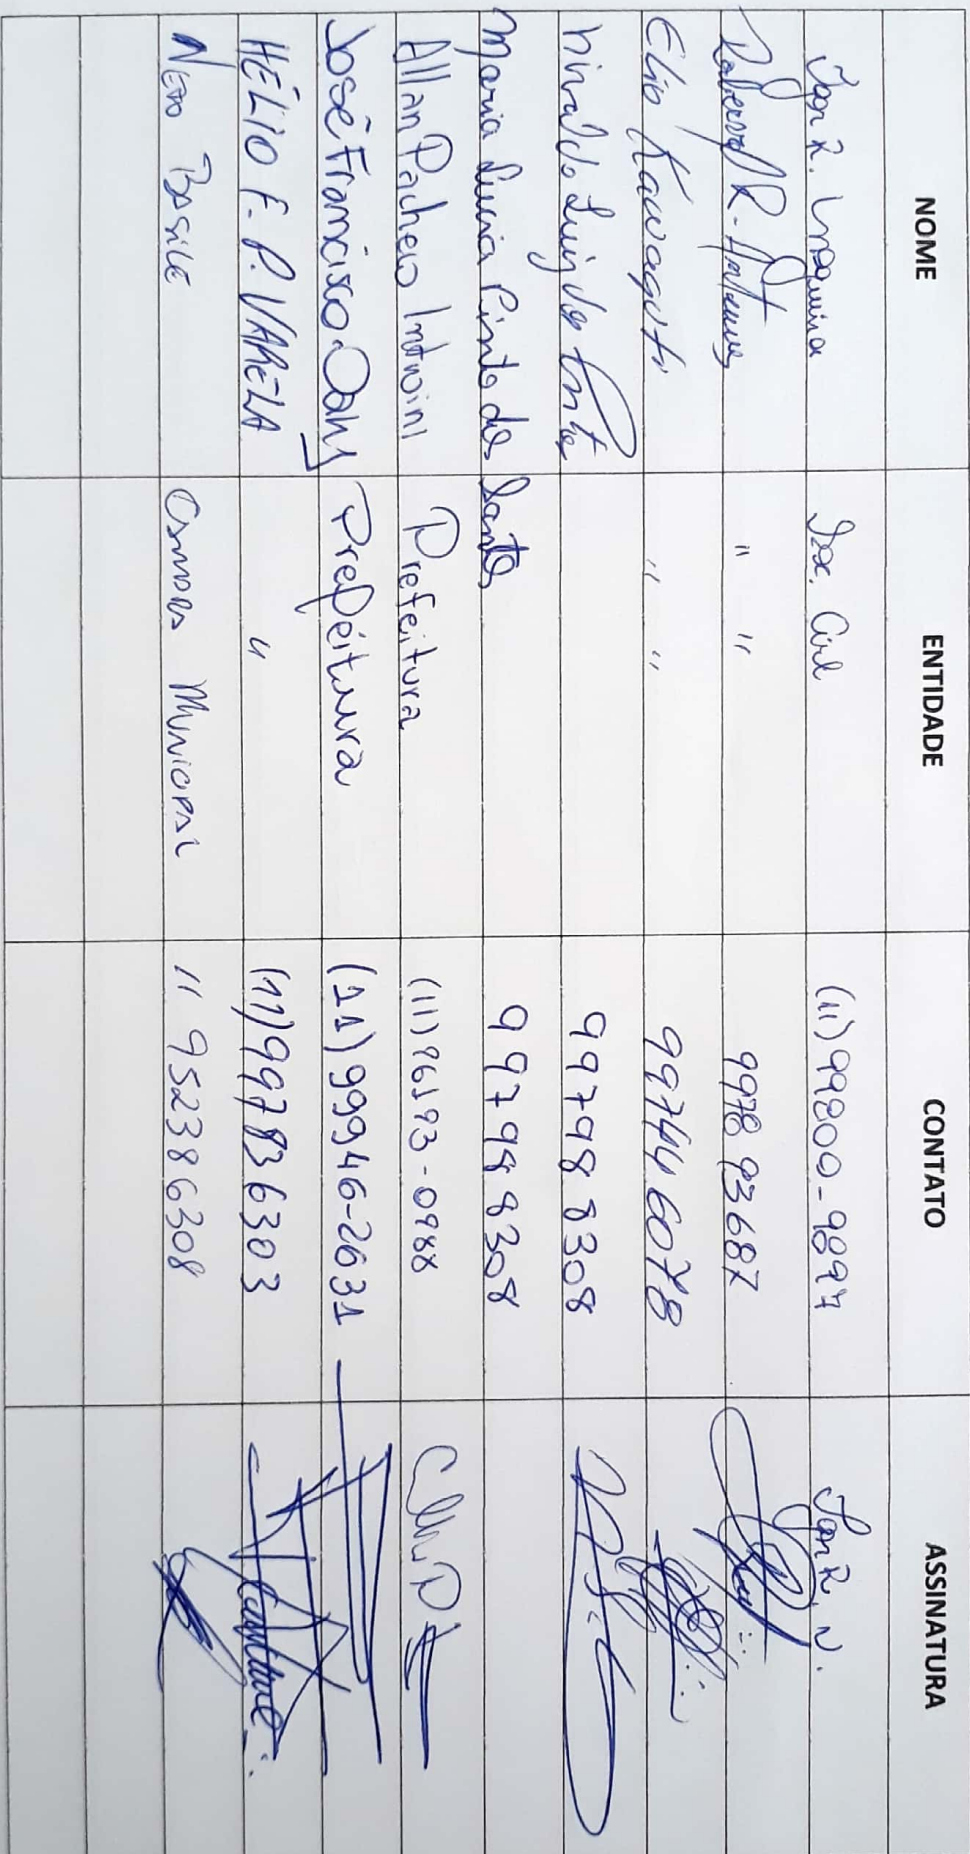 NOME ENTIDADE CONTATO ASSINATURA
Igor R. Soc. Civil (11) 99800-9897 Igor R. N.
Roberson R. Antunes " " 9978 93687
Elio Kawaguti " " 99744 6078
Nivaldo Luiz dos Santos 99798 8308
Maria Lucia Pinto dos Santos 99798 8308
Allan Pacheco Introini Prefeitura (11) 96193-0988
José Francisco Dahy Prefeitura (11) 99946-2631
HÉLIO F. P. VARELA " (11) 997836303
NENO BASILE CAMARA MUNICIPAL 11 952386308